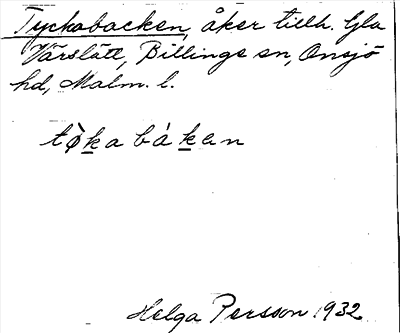 Tyckabacken, åker tillh. Gla
Vårslätt, Billinge sn, Onsjö
hd, Malm. l.
tø̀ḵa bá ḵen
Helga Persson 1932